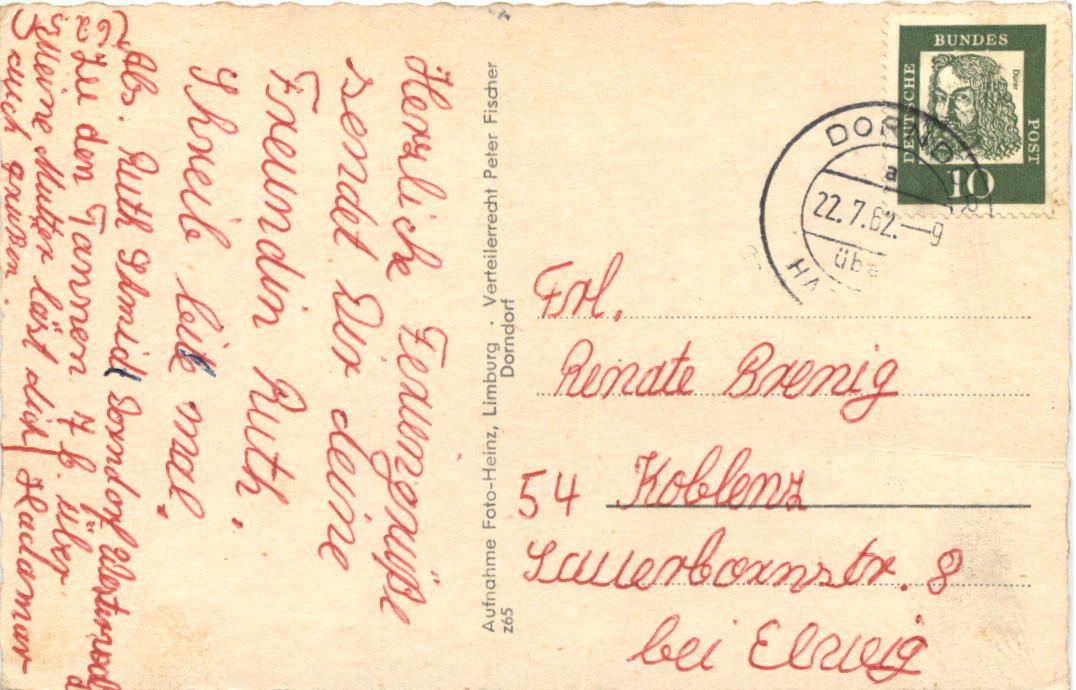 Herzliche Feriengrüße
sendet Dir deine
Freundin Ruth.
Schreib beit mal.
Abs. Ruth Schmidt Dorndorf Westerwald
(6251) Zu den Tannen 7 b. über Hadamar
Meine Mutter läst dich
auch grüßen.
Aufnahme Foto-Heinz, Limburg · Verteilerrecht Peter Fischer
z65 Dorndorf
DEUTSCHE BUNDES POST
Dürer
10
DORND
a
22.7.62.—9
übe
HA
Frl.
Renate Brenig
54 Koblenz
Sauerbornstr. 8
bei Elzwig